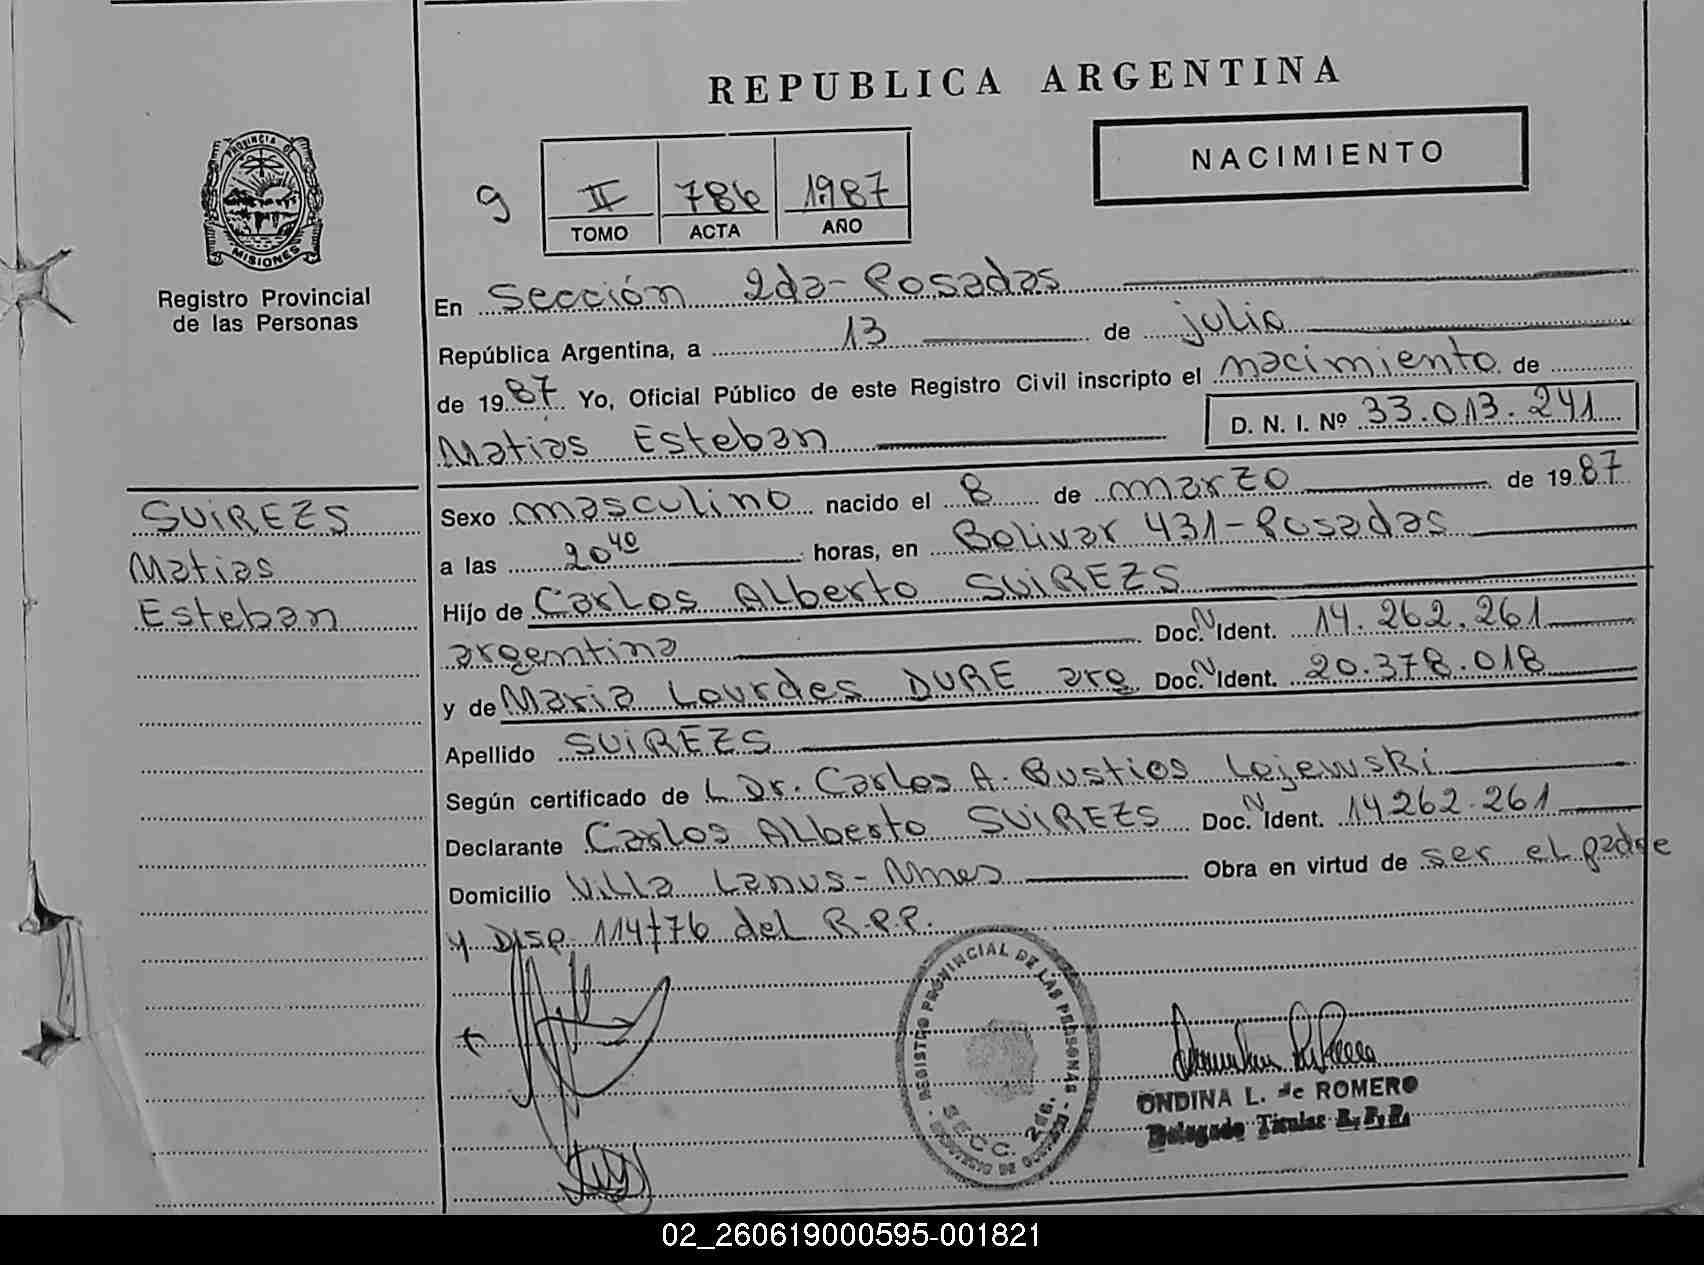 REPUBLICA ARGENTINA
NACIMIENTO
PROVINCIA DE
MISIONES
Registro Provincial
de las Personas
9
II 786 1987
TOMO ACTA AÑO
En Sección 2da - Posadas
República Argentina, a 13 de julio
de 1987 Yo, Oficial Público de este Registro Civil inscripto el nacimiento de
D. N. I. Nº 33.013.241
Matias Esteban
SUiREZS
Matias
Esteban
Sexo masculino nacido el 8 de marzo de 1987
a las 20 40 horas, en Bolivar 431 - Posadas
Hijo de Carlos Alberto SUiREZS
argentina Doc. N Ident. 14.262.261
y de Maria Lourdes DURE arg Doc. N Ident. 20.378.018
Apellido SUiREZS
Según certificado de L Dr. Carlos A. Bustios Lojewski
Declarante Carlos Alberto SUiREZS Doc. N Ident. 14262.261
Domicilio Villa Lanus - Mnes Obra en virtud de ser el padre
y Disp. 114/76 del R.P.P.
REGISTRO PROVINCIAL DE LAS PERSONAS
SECC. 2da.
ONDINA L. de ROMERO
Delegado Titular R.P.P.
02_260619000595-001821